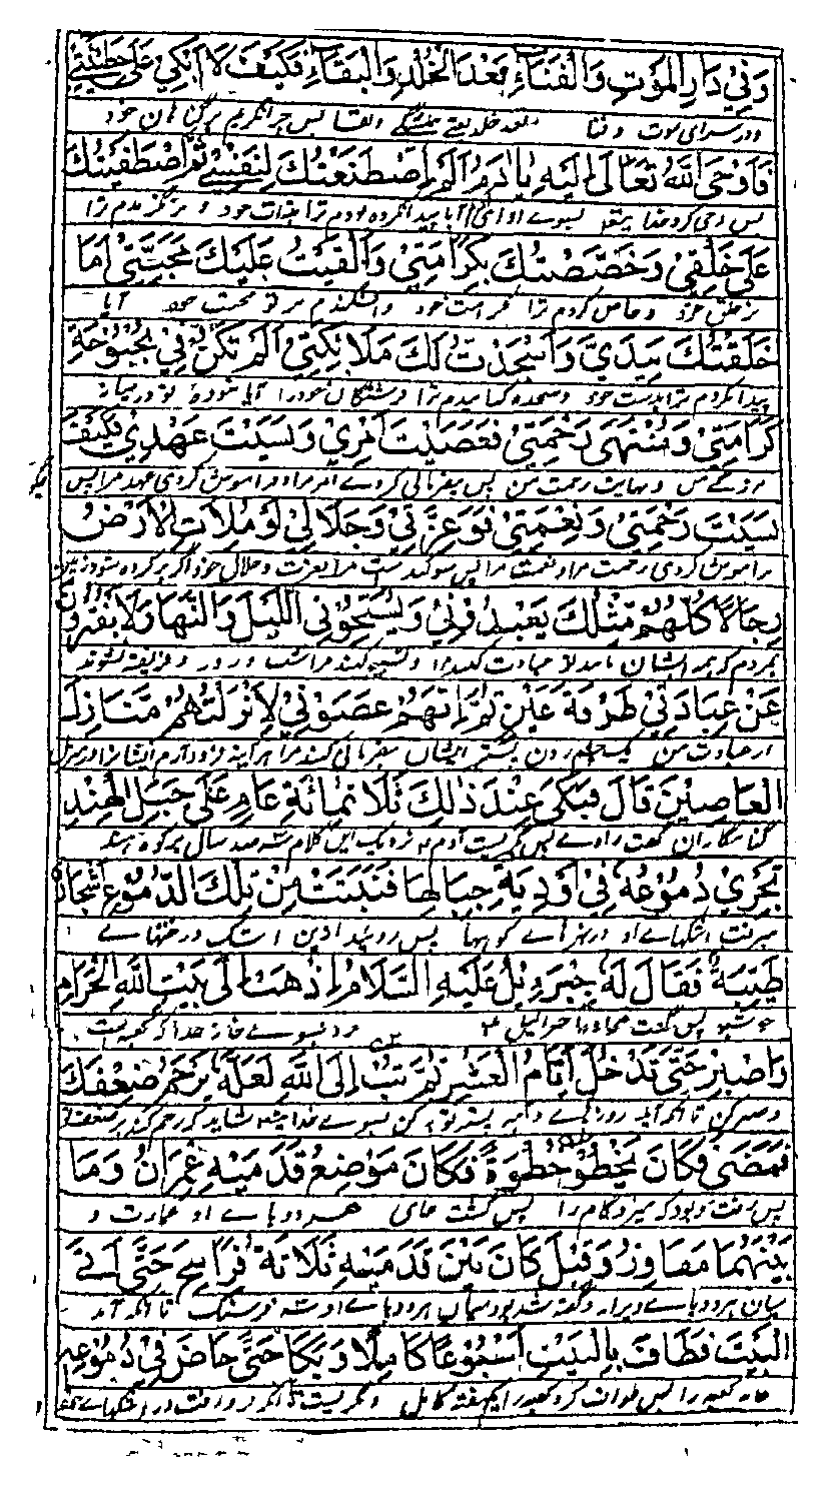 وَفِي دَارِ الْمَوْتِ وَالْفَنَاءِ بَعْدَ الْخُلْدِ وَالْبَقَاءِ فَكَيْفَ لَا أَبْكِي عَلَى خَطِيْئَتِي
ودر سرای موت و فنا بعد خلد یعنی همیشگی و بقا پس چرا نگریم بر گناهان خود
فَأَوْحَى اللهُ تَعَالَى إِلَيْهِ يَا آدَمُ أَلَمْ اصْطَنَعْتُكَ لِنَفْسِي ثُمَّ اصْطَفَيْتُكَ
پس وحی کرد خدا بسوے او ای آدم آیا پیدا نکرده بودم ترا بذات خود و برگزیدم ترا
عَلَى خَلْقِي وَخَصَّصْتُكَ بِكَرَامَتِي وَأَلْقَيْتُ عَلَيْكَ مَحَبَّتِي أَمَا
بر خلق خود و خاص کردم ترا بکرامت خود و افکندم بر تو محبت خود آیا
خَلَقْتُكَ بِيَدَيَّ وَأَسْجَدْتُ لَكَ مَلَائِكَتِي أَلَمْ تَكُنْ فِي بُحْبُوْحَةِ
پیدا نکردم ترا بدست خود و سجده کنانیدم ترا فرشتگان خود را آیا نبودی تو در میانه
كَرَامَتِي وَمُنْتَهَى رَحْمَتِي فَعَصَيْتَ أَمْرِي وَنَسِيْتَ عَهْدِي فَكَيْفَ
و نهایت رحمت من پس بیفرمانی کردے امر مرا و فراموش کردی عهد مرا پس
نَسِيْتَ رَحْمَتِي وَنِعْمَتِي فَوَعِزَّتِي وَجَلَالِي لَوْ مُلِأَتِ الْأَرْضُ
فراموش کردی رحمت مرا و نعمت مرا پس سوگند است مرا بعزت و جلال خود اگر پر کرده شود زمین
رِجَالًا كُلُّهُمْ مِثْلُكَ يَعْبُدُوْنِي وَيُسَبِّحُوْنِي اللَّيْلَ وَالنَّهَارَ وَلَا يَفْتُرُوْنَ
بمردم که همه ایشان مانند تو عبادت کنند مرا و تسبیح کنند مرا شب و روز و فریفته نشوند
عَنْ عِبَادَتِي طَرْفَةَ عَيْنٍ ثُمَّ إِنَّهُمْ عَصَوْنِي لَأَنْزَلْتُهُمْ مَنَازِلَ
از عبادت من یک چشم زدن پستر ایشان بیفرمانی کنند مرا هر آینه فرود آرم ایشان را در منزل
الْعَاصِيْنَ قَالَ فَبَكَى عِنْدَ ذَلِكَ ثَلَاثَمِائَةِ عَامٍ عَلَى جَبَلِ الْهِنْدِ
گناهگاران گفت راوے پس گریست آدم نزدیک این کلام سه صد سال بر کوه هند
تَجْرِي دُمُوْعُهُ فِي أَوْدِيَةِ جِبَالِهَا فَنَبَتَتْ مِنْ تِلْكَ الدُّمُوْعِ أَشْجَارٌ
میرفت اشکهاے او در نهرهاے کوهها پس روئید ازین اشک درختهاے
طَيِّبَةٌ فَقَالَ لَهُ جِبْرَئِيْلُ عَلَيْهِ السَّلَامُ اذْهَبْ إِلَى بَيْتِ اللهِ الْحَرَامِ
خوشبو پس گفت جبرائیل برو بسوے خانه خدا که کعبه است
وَاصْبِرْ حَتَّى تَدْخُلَ أَيَّامُ الْعَشْرِ ثُمَّ تُبْ إِلَى اللهِ لَعَلَّهُ يَرْحَمُ ضَعْفَكَ
و صبر کن تا آنکه آید روزهاے پستر توبه کن بسوے خدا شاید که رحم کند بر ضعف تو
فَمَضَى فَكَانَ يَخْطُو خُطْوَةً فَكَانَ مَوْضِعُ قَدَمَيْهِ عِمْرَانُ وَمَا
پس رفت و بود که میزد گام را پس گشت جای هر دو پاے او عمارت و
بَيْنَهُمَا مَفَاوِزُ وَقِيْلَ كَانَ بَيْنَ قَدَمَيْهِ ثَلَاثَةُ فَرَاسِخَ حَتَّى أَتَى
میان هر دو پاے ویرانه و گفته شد بود میان هر دو پاے او سه فرسنگ تا آنکه آمد
الْبَيْتَ فَطَافَ بِالْبَيْتِ أُسْبُوْعًا كَامِلًا وَبَكَا حَتَّى خَاضَ فِي دُمُوْعِهِ
خانه کعبه را پس طواف کرد کعبه را یکهفته کامل و گریست تا آنکه فرو رفت در اشکهاے